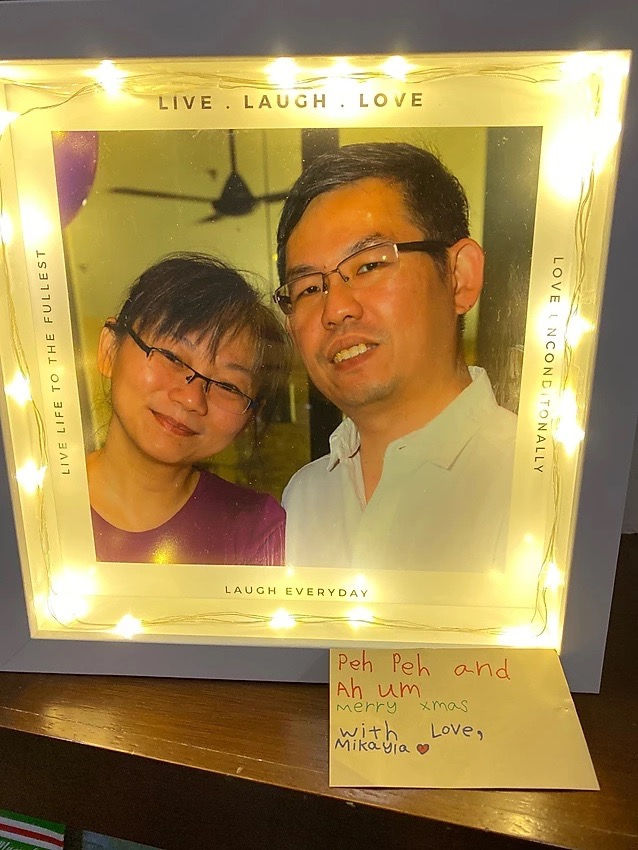 LIVE . LAUGH . LOVE
LIVE LIFE TO THE FULLEST
LOVE UNCONDITONALLY
LAUGH EVERYDAY
Peh Peh and
Ah Um
merry xmas
with Love,
Mikayla ❤